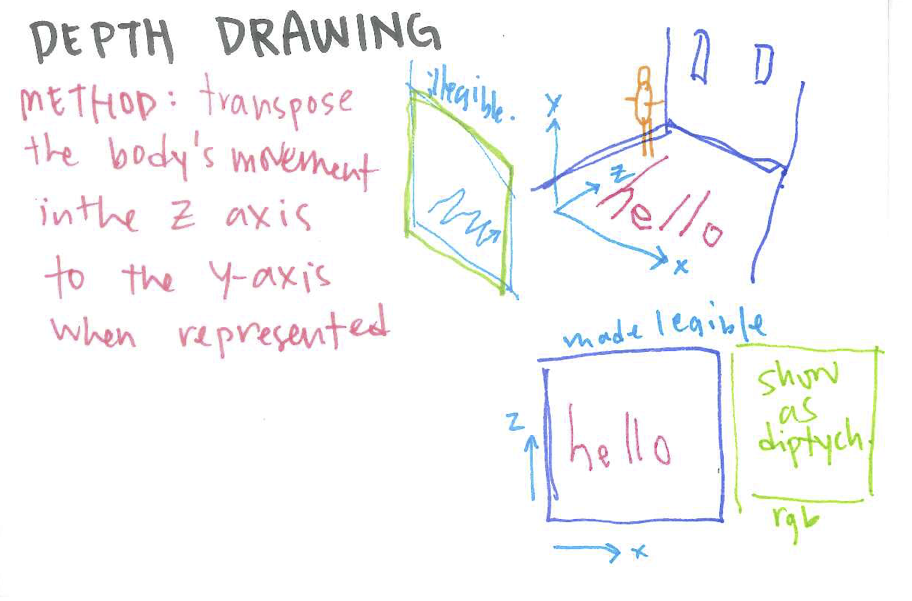 DEPTH DRAWING
METHOD: transpose
the body's movement
in the Z axis
to the Y-axis
when represented
illegible.
Y
Z
hello
X
made legible
Z
hello
X
show
as
diptych.
rgb